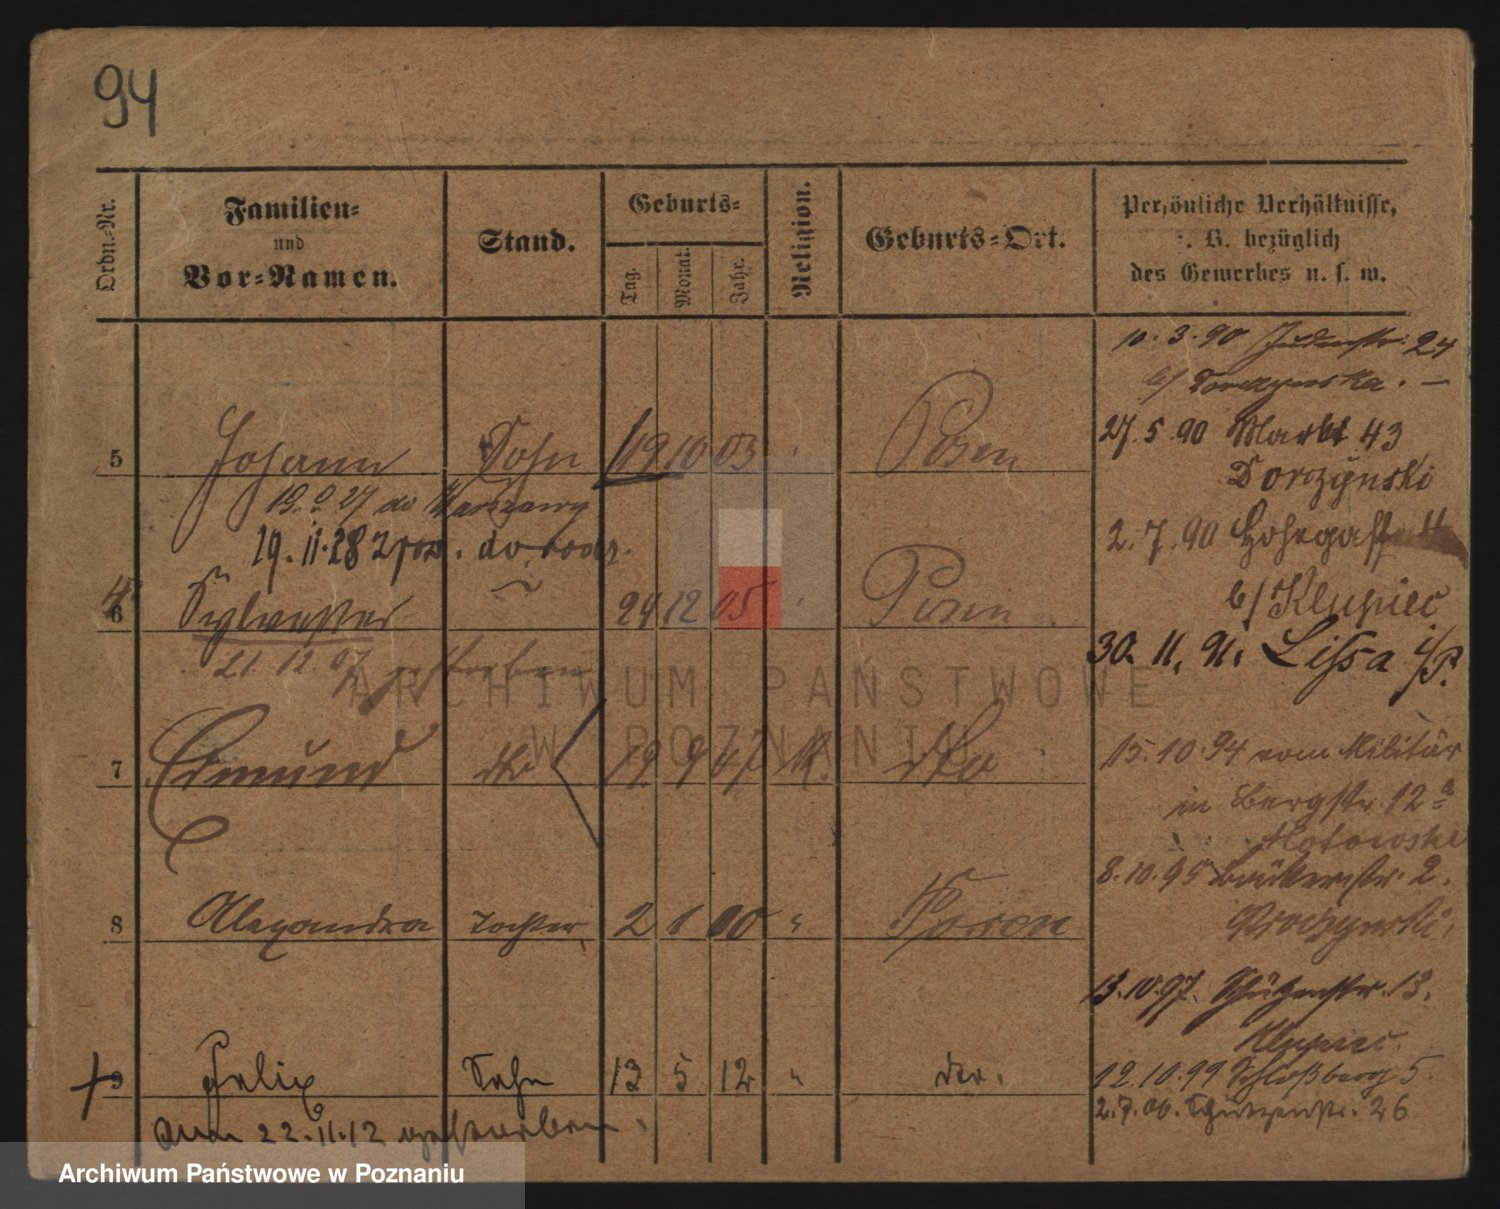 94
Ordn.-Nr.
Familien-
und
Vor-Namen.
Stand.
Geburts-
Tag.
Monat.
Jahr.
Religion.
Geburts-Ort.
Persönliche Verhältnisse,
z. B. bezüglich
des Gewerbes u. s. w.
5 Johann Sohn 19 10 03 Posen
19.9.27 do Warszawy
19.11.28 z pow. do
6 Sylvester 24 12 05 Posen
21.12.07 gestorben
7 Edmund dto 19 9 07 k. dto
8 Alexandra Tochter 2 1 00 " Posen
9 Felix Sohn 13 5 12 " dto.
am 22.11.12 gestorben.
10.3.90 Judenstr. 24
b/ Dorczynska. —
27.5.90 Markt 43
Dorczynski
2.7.90 Hohegasse 4
b/ Klupiec
30.11.91. Lissa i/P.
15.10.94 vom Militär
in Bergstr. 12a
8.10.95 2.
13.10.97. Schützenstr. 13.
Klupiec
12.10.99 Schloßberg 5.
2.7.00. Schützenstr. 26
ARCHIWUM PAŃSTWOWE
W POZNANIU
Archiwum Państwowe w Poznaniu